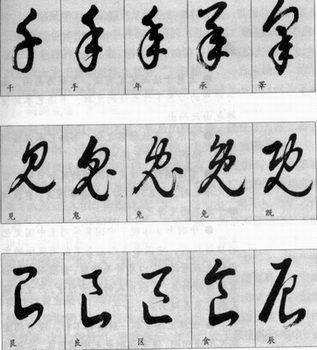 千 手 年 承 举
見 鬼 兎 免 既
艮 良 区 食 辰